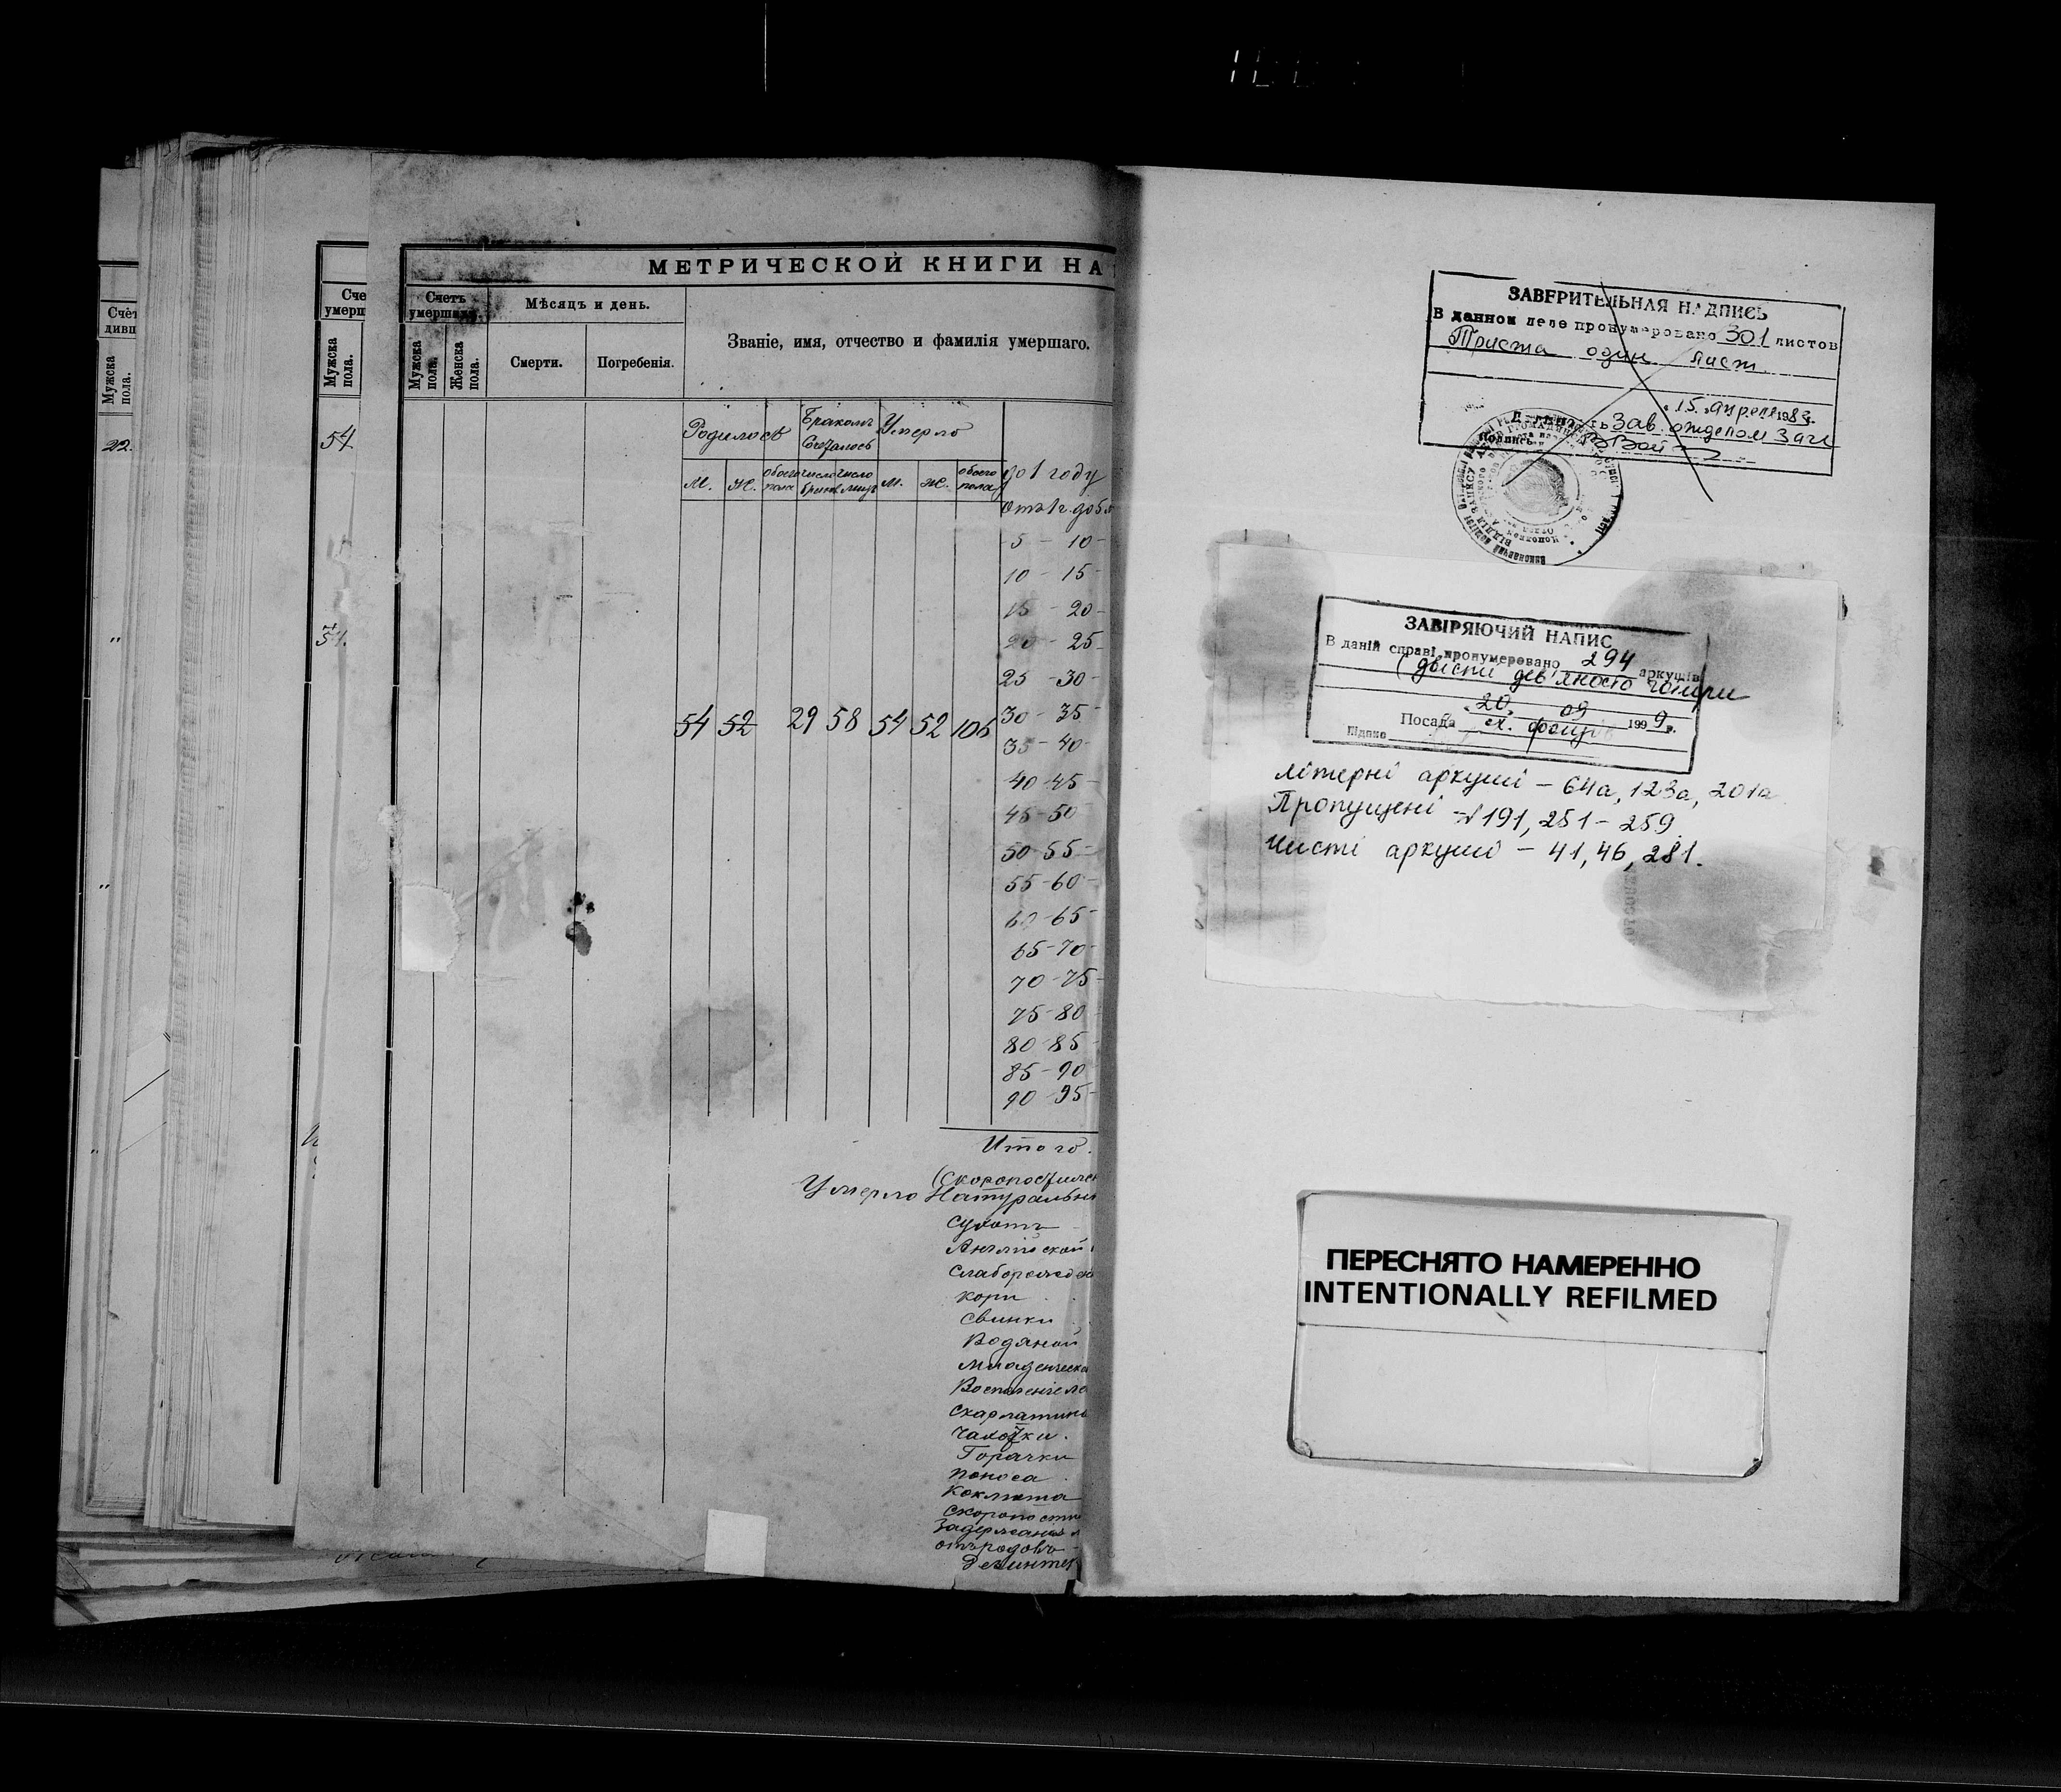 МЕТРИЧЕСКОЙ КНИГИ НА
Счетъ умершихъ.
Мѣсяцъ и день.
Званіе, имя, отчество и фамилія умершаго.
Мужска пола.
Женска пола.
Смерти.
Погребенія.
Счё
дивш
Мужска пола.
22.
"
"
"
Сче
умерш
Мужска пола.
54
54.
Родилось
Бракомъ
Сочеталось
Умерло
М. Ж. обоего пола число браковъ число лицъ М. Ж. обоего пола
до 1 году
отъ 1 г. до 5 л
5 - 10 -
10 - 15 -
15 - 20 -
20 - 25 -
25 - 30 -
54 52 29 58 54 52 106
30 - 35 -
35 - 40 -
40 - 45 -
45 - 50
50 - 55 -
55 - 60 -
60 - 65 -
65 - 70 -
70 - 75 -
75 - 80 -
80 - 85 -
85 - 90
90 - 95 -
Итого.
Умерло
Натуральн
Сухотъ
Английской
Слаборожден
Кори
Свинки
Водяной
Младенческо
Скарлатины
Чахотки.
Горячки
Поноса
Коклюша
Скоропости
Задержания
отъ родовъ
Дезинтер
ЗАВЕРИТЕЛЬНАЯ НАДПИСЬ
В данном деле пронумеровано 301 листов
Триста один лист.
„15„ апреля 1983г.
Зав. отделом Загс
Подпись
ЗАВІРЯЮЧИЙ НАПИС
В даній справі пронумеровано 294 аркушів
(двісті дев'яносто чотири
20. 09 1999 р.
Посада хр. фондів
Підпис
Літерні аркуші - 64а, 123а, 201а
Пропущені - №191, 251-259.
Чисті аркуші - 41, 46, 281.
ПЕРЕСНЯТО НАМЕРЕННО
INTENTIONALLY REFILMED